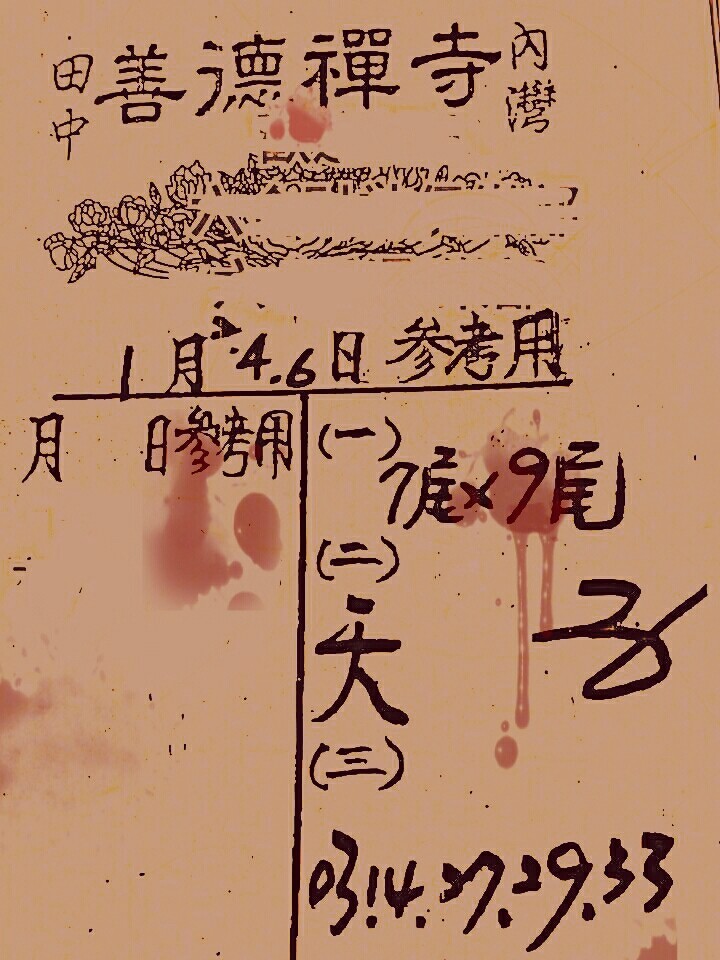 田中 善德禪寺 內灣
1月 4.6日 參考用
月 日參考用
(一)
7尾x9尾
(二)
(三)
03.14.27.29.33